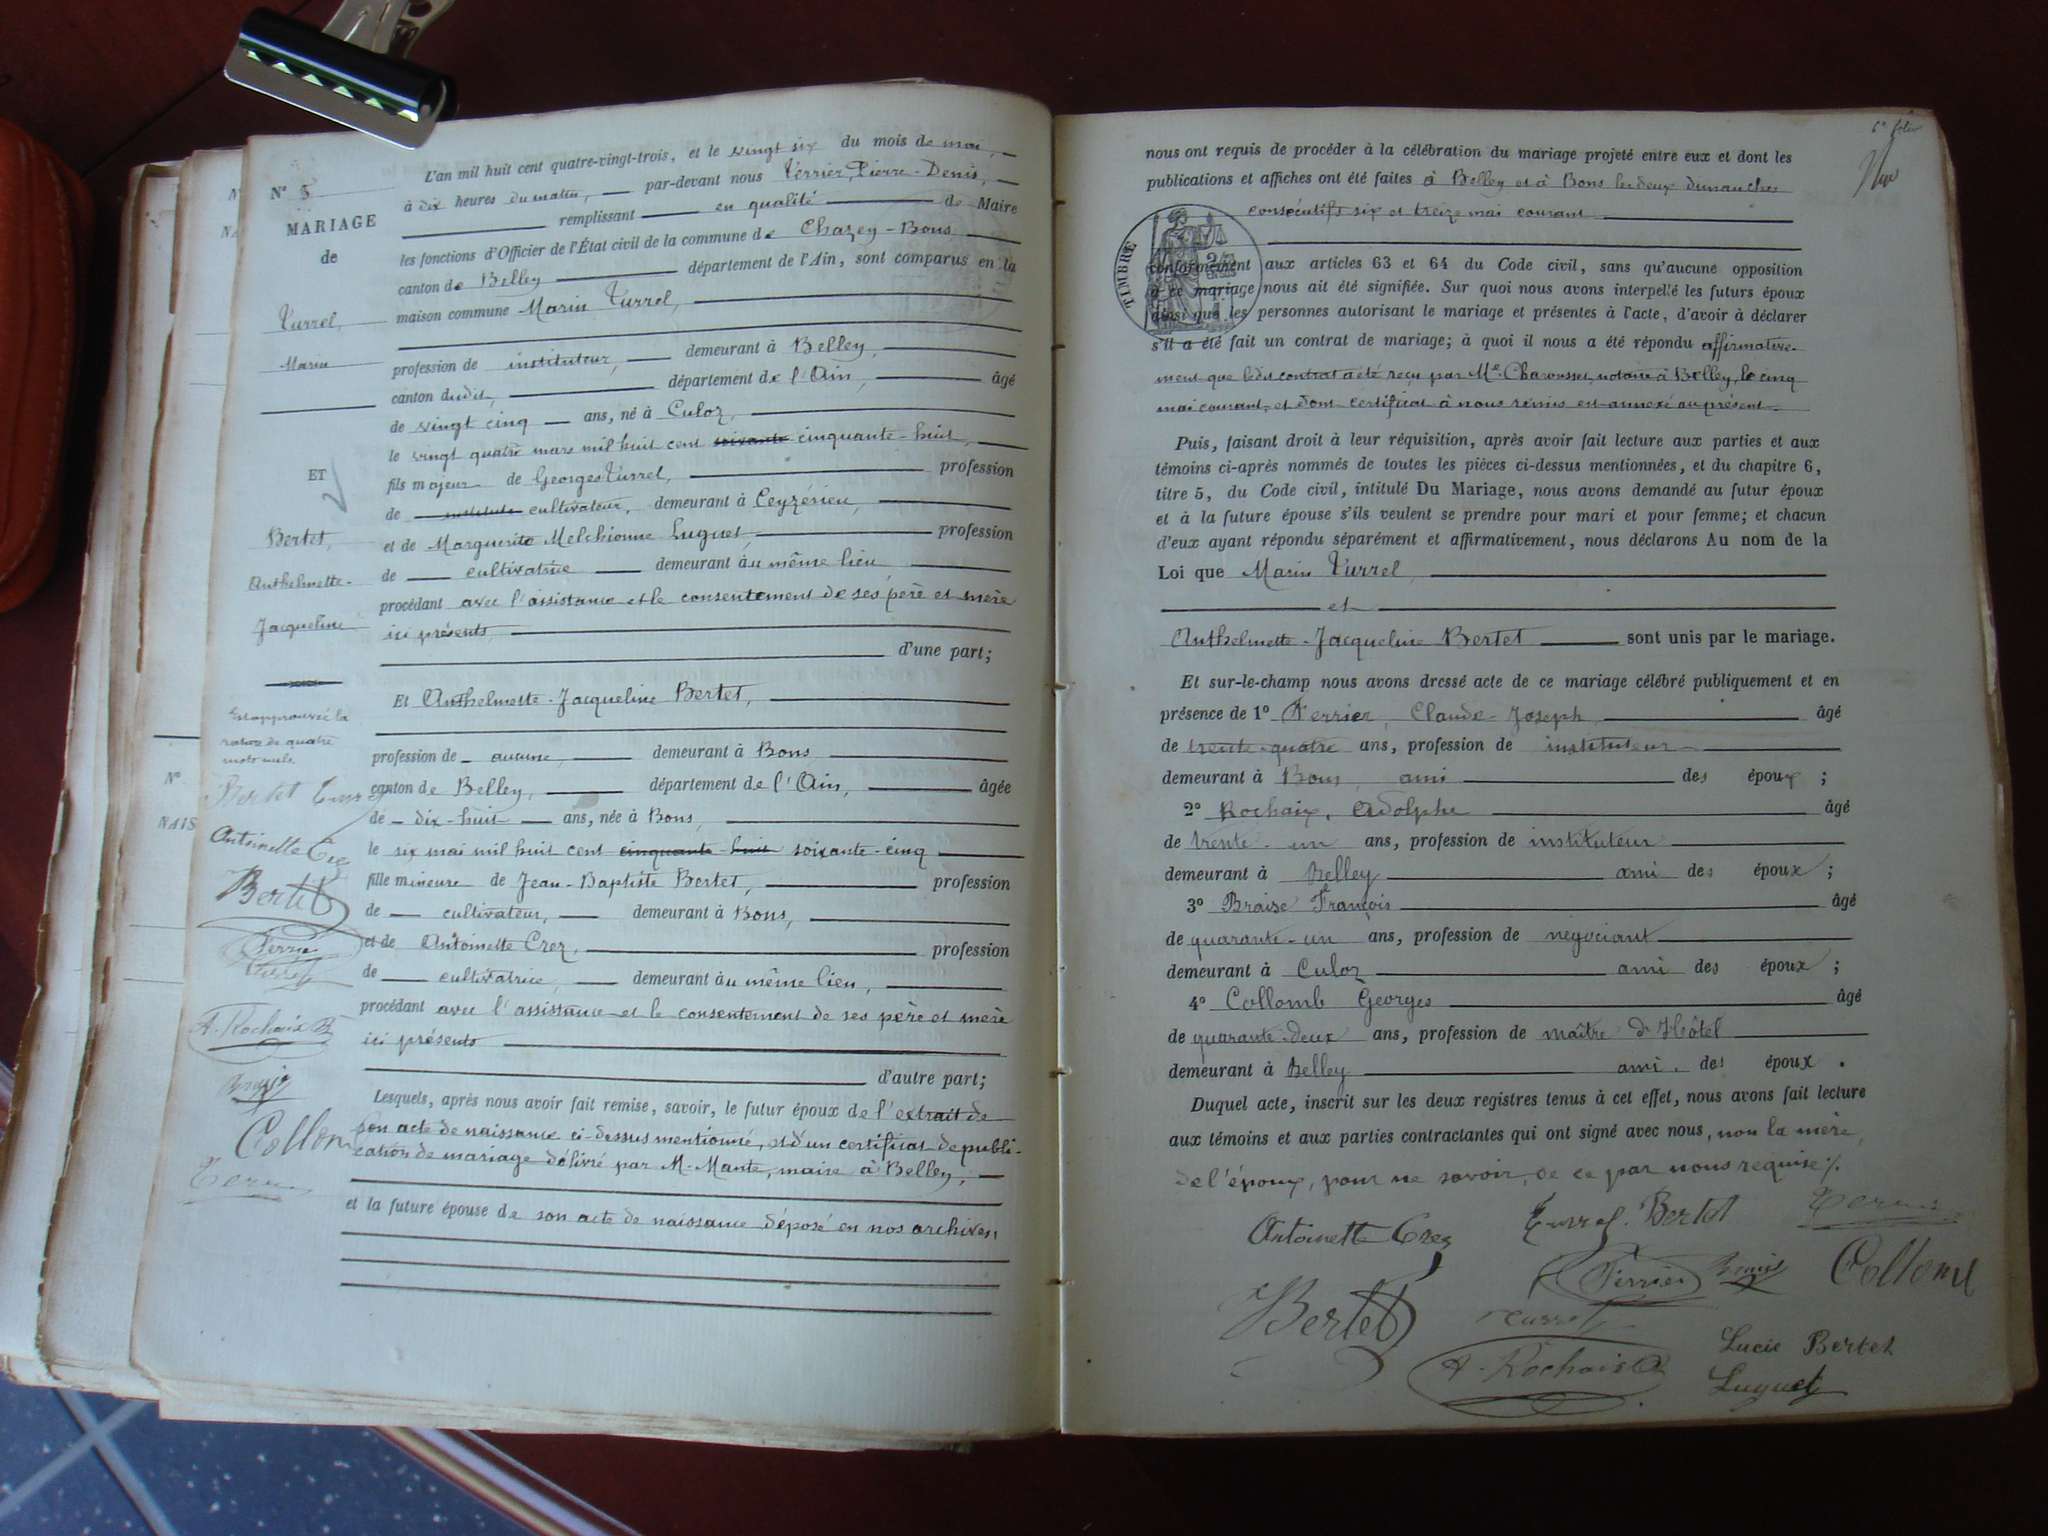 N° 5
MARIAGE
de
Turrel,
Marin
ET
Bertet,
Anthelmette-
Jacqueline
Est approuvée la
ration de quatre
mots nuls.
Bertet Turrel
Antoinette Crez
Bertet
A. Rochaix
Collom
L'an mil huit cent quatre-vingt-trois, et le vingt six du mois de mai,
à dix heures du matin, par-devant nous Perrier, Pierre-Denis,
remplissant en qualité de Maire
les fonctions d'Officier de l'État civil de la commune de Chazey-Bons
canton de Belley département de l'Ain, sont comparus en la
maison commune Marin Turrel,
profession de instituteur, demeurant à Belley,
canton dudit, département de l'Ain, âgé
de vingt cinq ans, né à Culoz,
le vingt quatre mars mil huit cent soixante cinquante-huit,
fils majeur de Georges Turrel, profession
de institute cultivateur, demeurant à Ceyzérieu,
et de Marguerite Melchionne Luguet, profession
de cultivatrice demeurant au même lieu
procédant avec l'assistance et le consentement de ses père et mère
ici présents,
d'une part;
Et Anthelmette-Jacqueline Bertet,
profession de aucune, demeurant à Bons
canton de Belley, département de l'Ain, âgée
de dix-huit ans, née à Bons,
le six mai mil huit cent cinquante-huit soixante-cinq
fille mineure de Jean-Baptiste Bertet, profession
de cultivateur, demeurant à Bons,
et de Antoinette Crez, profession
de cultivatrice, demeurant au même lieu,
procédant avec l'assistance et le consentement de ses père et mère
ici présents
d'autre part;
Lesquels, après nous avoir fait remise, savoir, le futur époux de l'extrait de
son acte de naissance ci-dessus mentionné, et d'un certificat de publi-
cation de mariage délivré par M. Mante, maire à Belley,
et la future épouse de son acte de naissance déposé en nos archives,
N°
NAIS
6e folio
nous ont requis de procéder à la célébration du mariage projeté entre eux et dont les
publications et affiches ont été faites à Belley et à Bons les deux dimanches
consécutifs six et treize mai courant
TIMBRE
conformément aux articles 63 et 64 du Code civil, sans qu'aucune opposition
à ce mariage nous ait été signifiée. Sur quoi nous avons interpellé les futurs époux
ainsi que les personnes autorisant le mariage et présentes à l'acte, d'avoir à déclarer
s'il a été fait un contrat de mariage; à quoi il nous a été répondu affirmative-
ment que ledit contrat a été reçu par Me Charousset, notaire à Belley, le cinq
mai courant, et dont certificat à nous remis est annexé au présent.
Puis, faisant droit à leur réquisition, après avoir fait lecture aux parties et aux
témoins ci-après nommés de toutes les pièces ci-dessus mentionnées, et du chapitre 6,
titre 5, du Code civil, intitulé Du Mariage, nous avons demandé au futur époux
et à la future épouse s'ils veulent se prendre pour mari et pour femme; et chacun
d'eux ayant répondu séparément et affirmativement, nous déclarons Au nom de la
Loi que Marin Turrel
et
Anthelmette-Jacqueline Bertet sont unis par le mariage.
Et sur-le-champ nous avons dressé acte de ce mariage célébré publiquement et en
présence de 1° Perrier, Claude-Joseph âgé
de trente-quatre ans, profession de instituteur
demeurant à Bons, ami des époux;
2° Rochaix, Adolphe âgé
de trente-un ans, profession de instituteur
demeurant à Belley ami des époux;
3° Braise François âgé
de quarante-un ans, profession de négociant
demeurant à Culoz ami des époux;
4° Collomb Georges âgé
de quarante-deux ans, profession de maître d'Hôtel
demeurant à Belley ami des époux.
Duquel acte, inscrit sur les deux registres tenus à cet effet, nous avons fait lecture
aux témoins et aux parties contractantes qui ont signé avec nous, non la mère
de l'époux, pour ne savoir, de ce par nous requise ./.
Antoinette Crez Turrel Bertet
Perrier Collomb
Bertet Turrel
A. Rochaix Lucie Bertet
Luguet